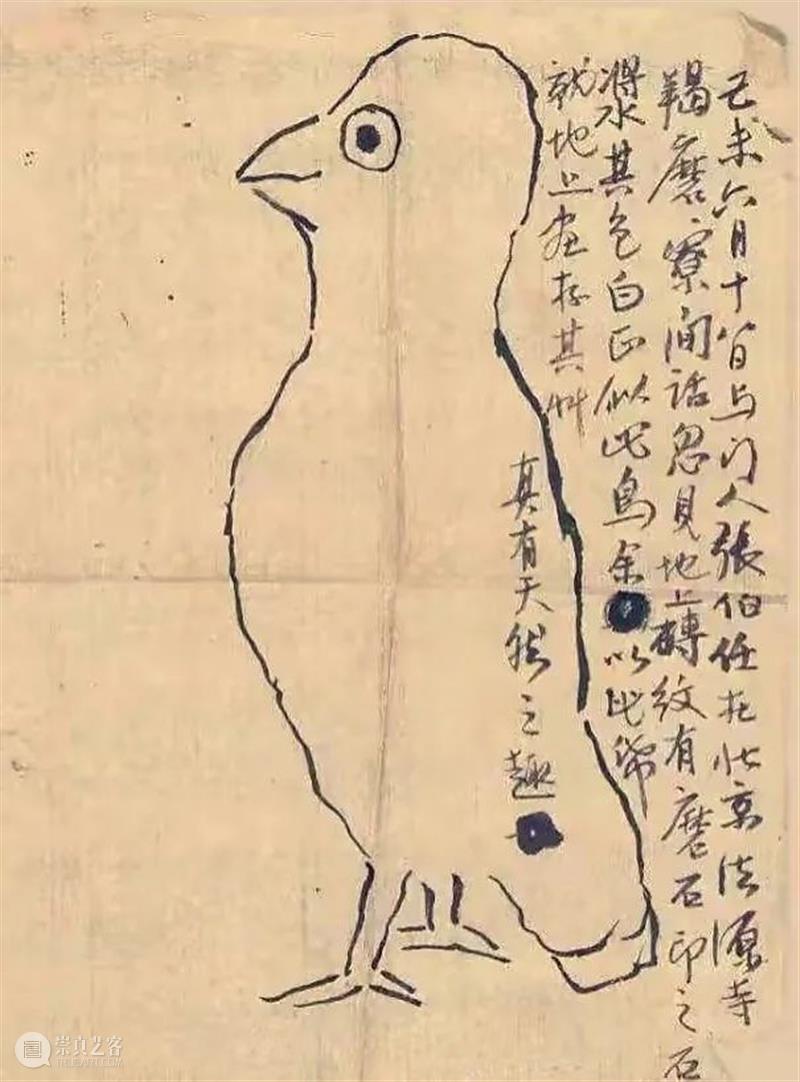 己未六月十八日与门人張伯任在北京法源寺
羯磨寮閒話忽見地上磚紋有磨石印之石
漿水其色白正似此鳥余以此帋
就地上画存其艸
真有天然之趣
崇真艺客